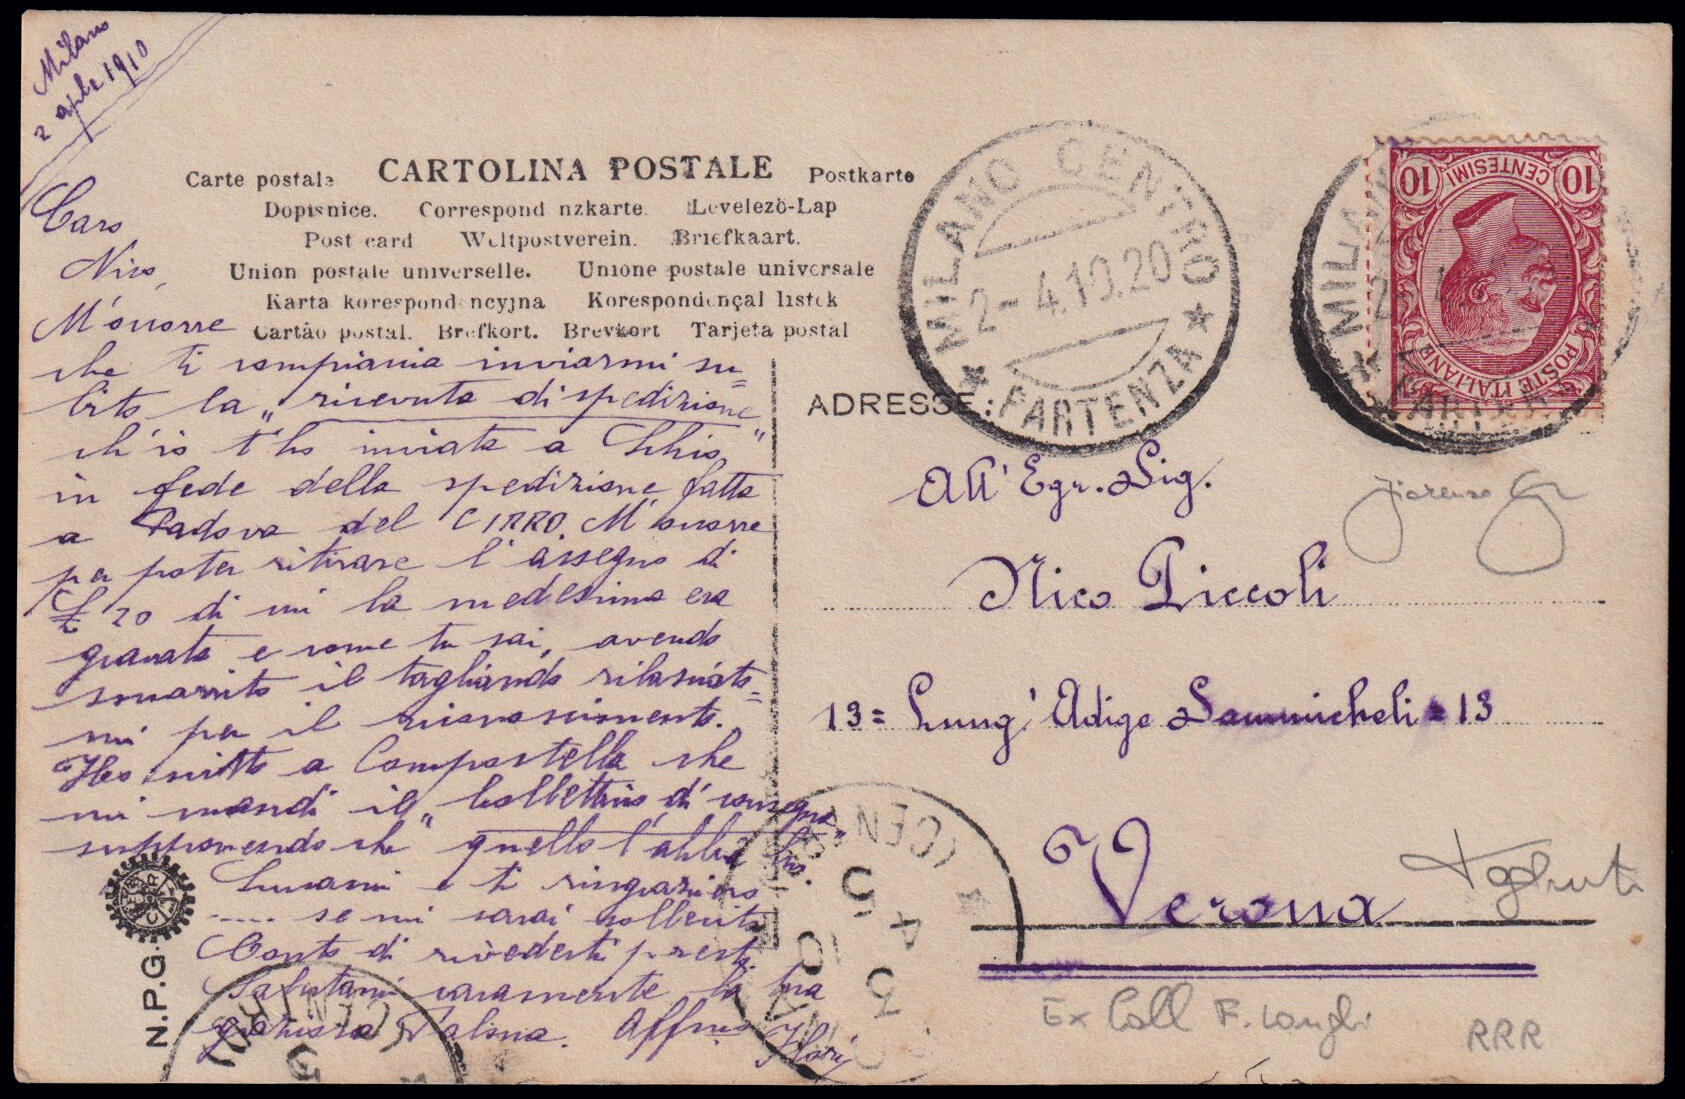 Milano
2 aprile 1910
Caro
Nico,
M'occorre
che ti compiaccia inviarmi su=
bito la „ricevuta di spedizione
ch'io t'ho inviata a Schio"
in fede della spedizione fatta
a Padova del CIRRO. M'occorre
per poter ritirare l'assegno di
£ 20 di cui la medesima era
gravata e come tu sai, avendo
smarrito il tagliando rilasciato=
mi per il riconoscimento.
Ho scritto a Compostella che
mi mandi il „bollettino di consegna"
supponendo che quello l'abbia lui.
Scusami e ti ringrazierò
..... se mi sarai sollecito
Conto di rivederti presto
Salutami caramente la tua
graziosa Palma. Affmo
CARTOLINA POSTALE
Carte postale Postkarte
Dopisnice. Correspond nzkarte. Levelező-Lap
Post card Weltpostverein. Briefkaart.
Union postale universelle. Unione postale universale
Karta korespondencyjna Korespondençal listek
Cartão postal. Brefkort. Brevkort Tarjeta postal
MILANO CENTRO
2-4.10.20
PARTENZA
MILAN
10 CENTESIMI 10
POSTE ITALIANE
ADRESSE:
All' Egr. Sig.
Nico Piccoli
13= Lung' Adige Sammicheli = 13
Verona
(CENTRO)
3 4 10
5
N.P.G.
(CENTRO)
Ex Coll F. Longhi
RRR